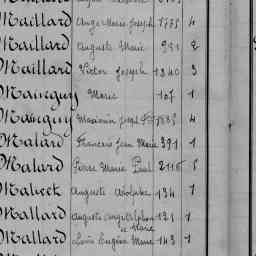 Maillard Ange Marie Joseph 1775 4
Maillard Auguste Marie 951 2
Maillard Victor Joseph 1340 3
Mainguy Marie 107 1
Mainguy Joseph 4
Malard François Jean Marie 391 1
Malard Pierre Marie Paul 2116 5
Malivet Auguste Adolphe 134 1
Mallard Auguste 121 1
Marie
Mallard Louis Eugène Marie 143 1